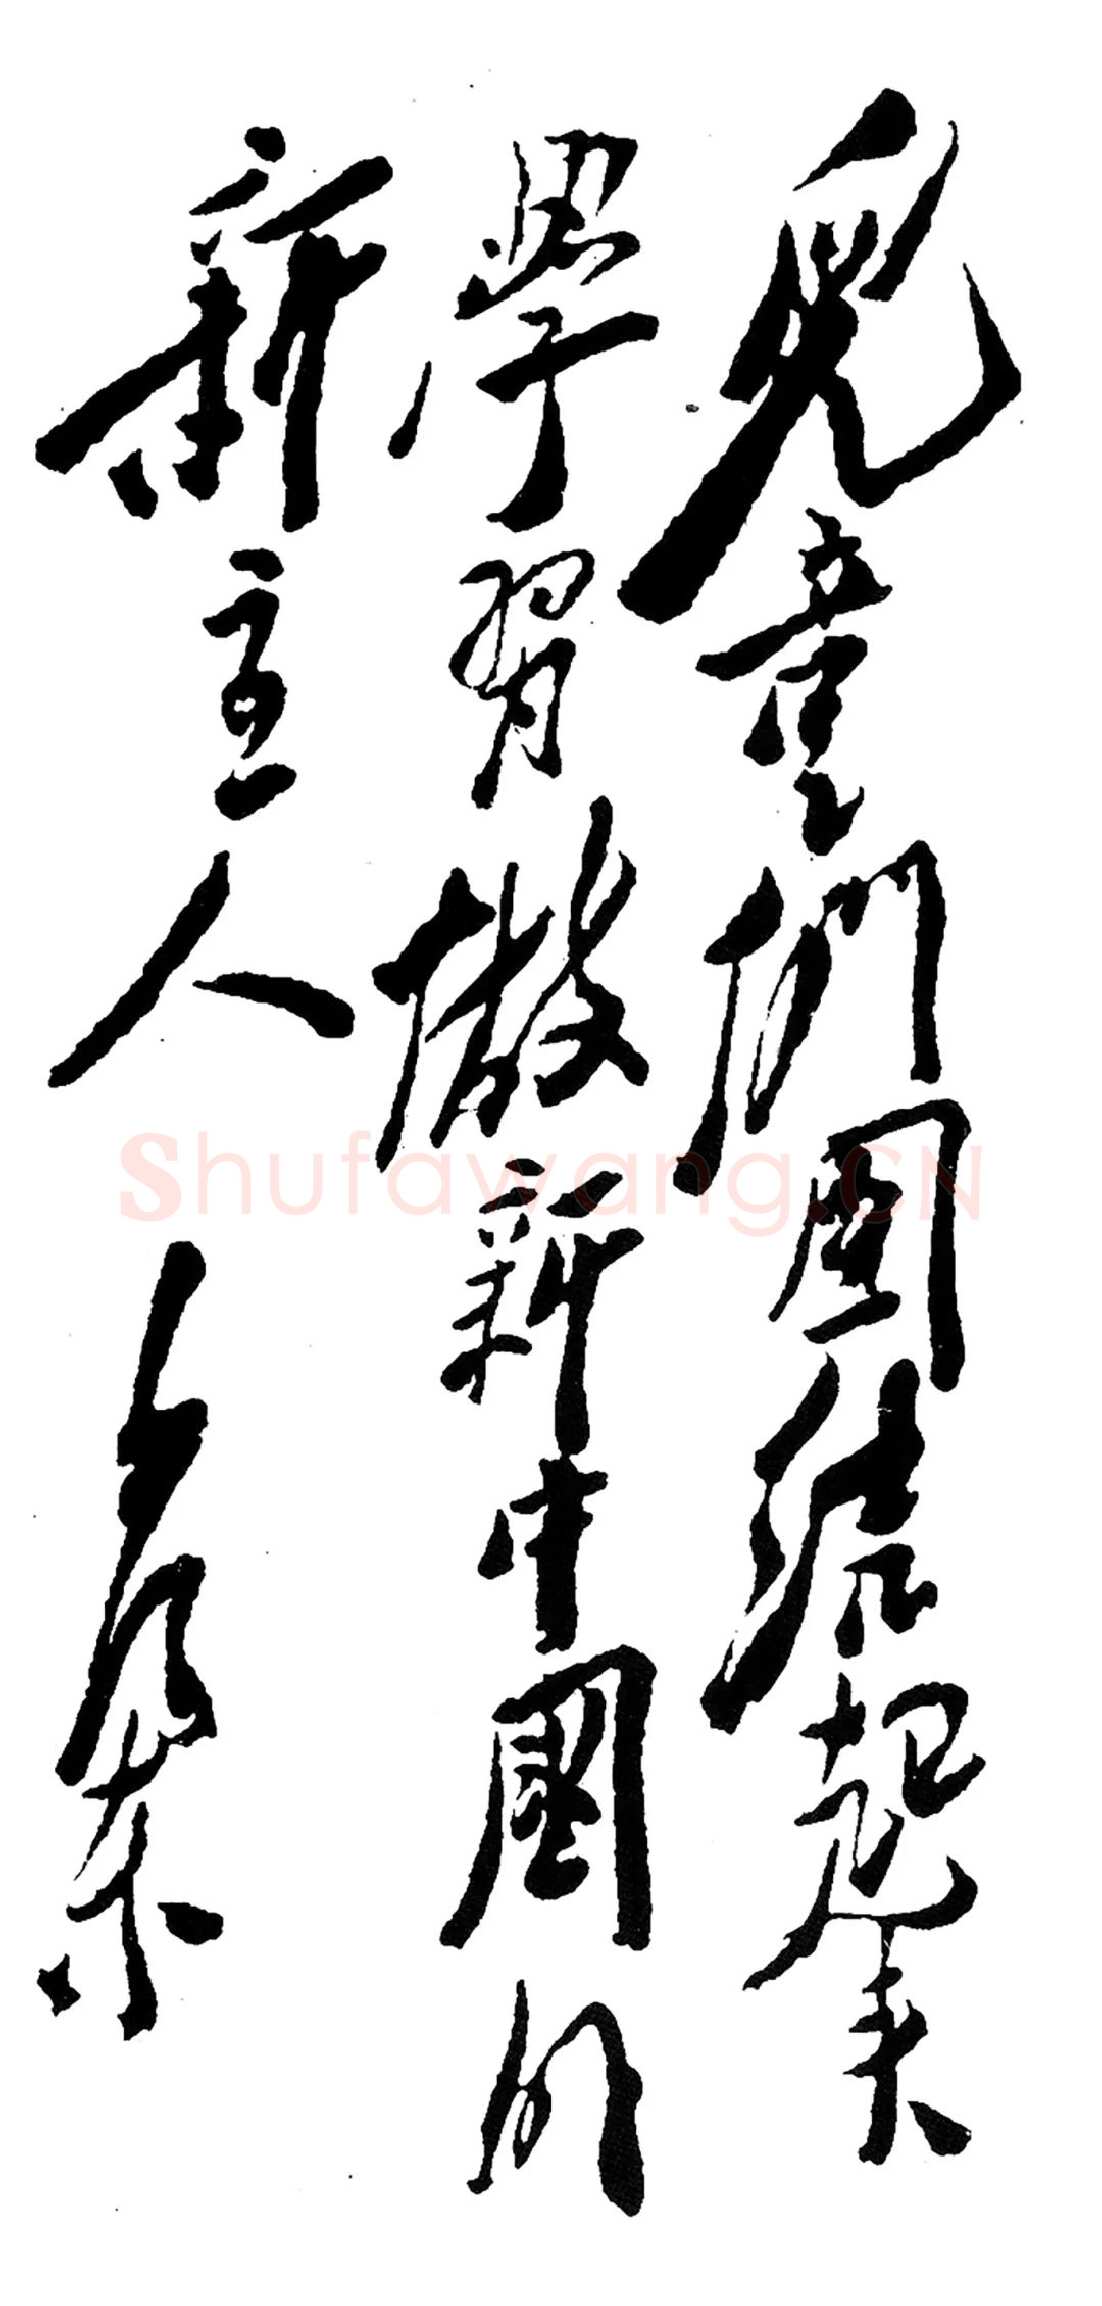 兒童們團結起來
學習做新中國的
新主人
毛澤東
Shufawang.CN